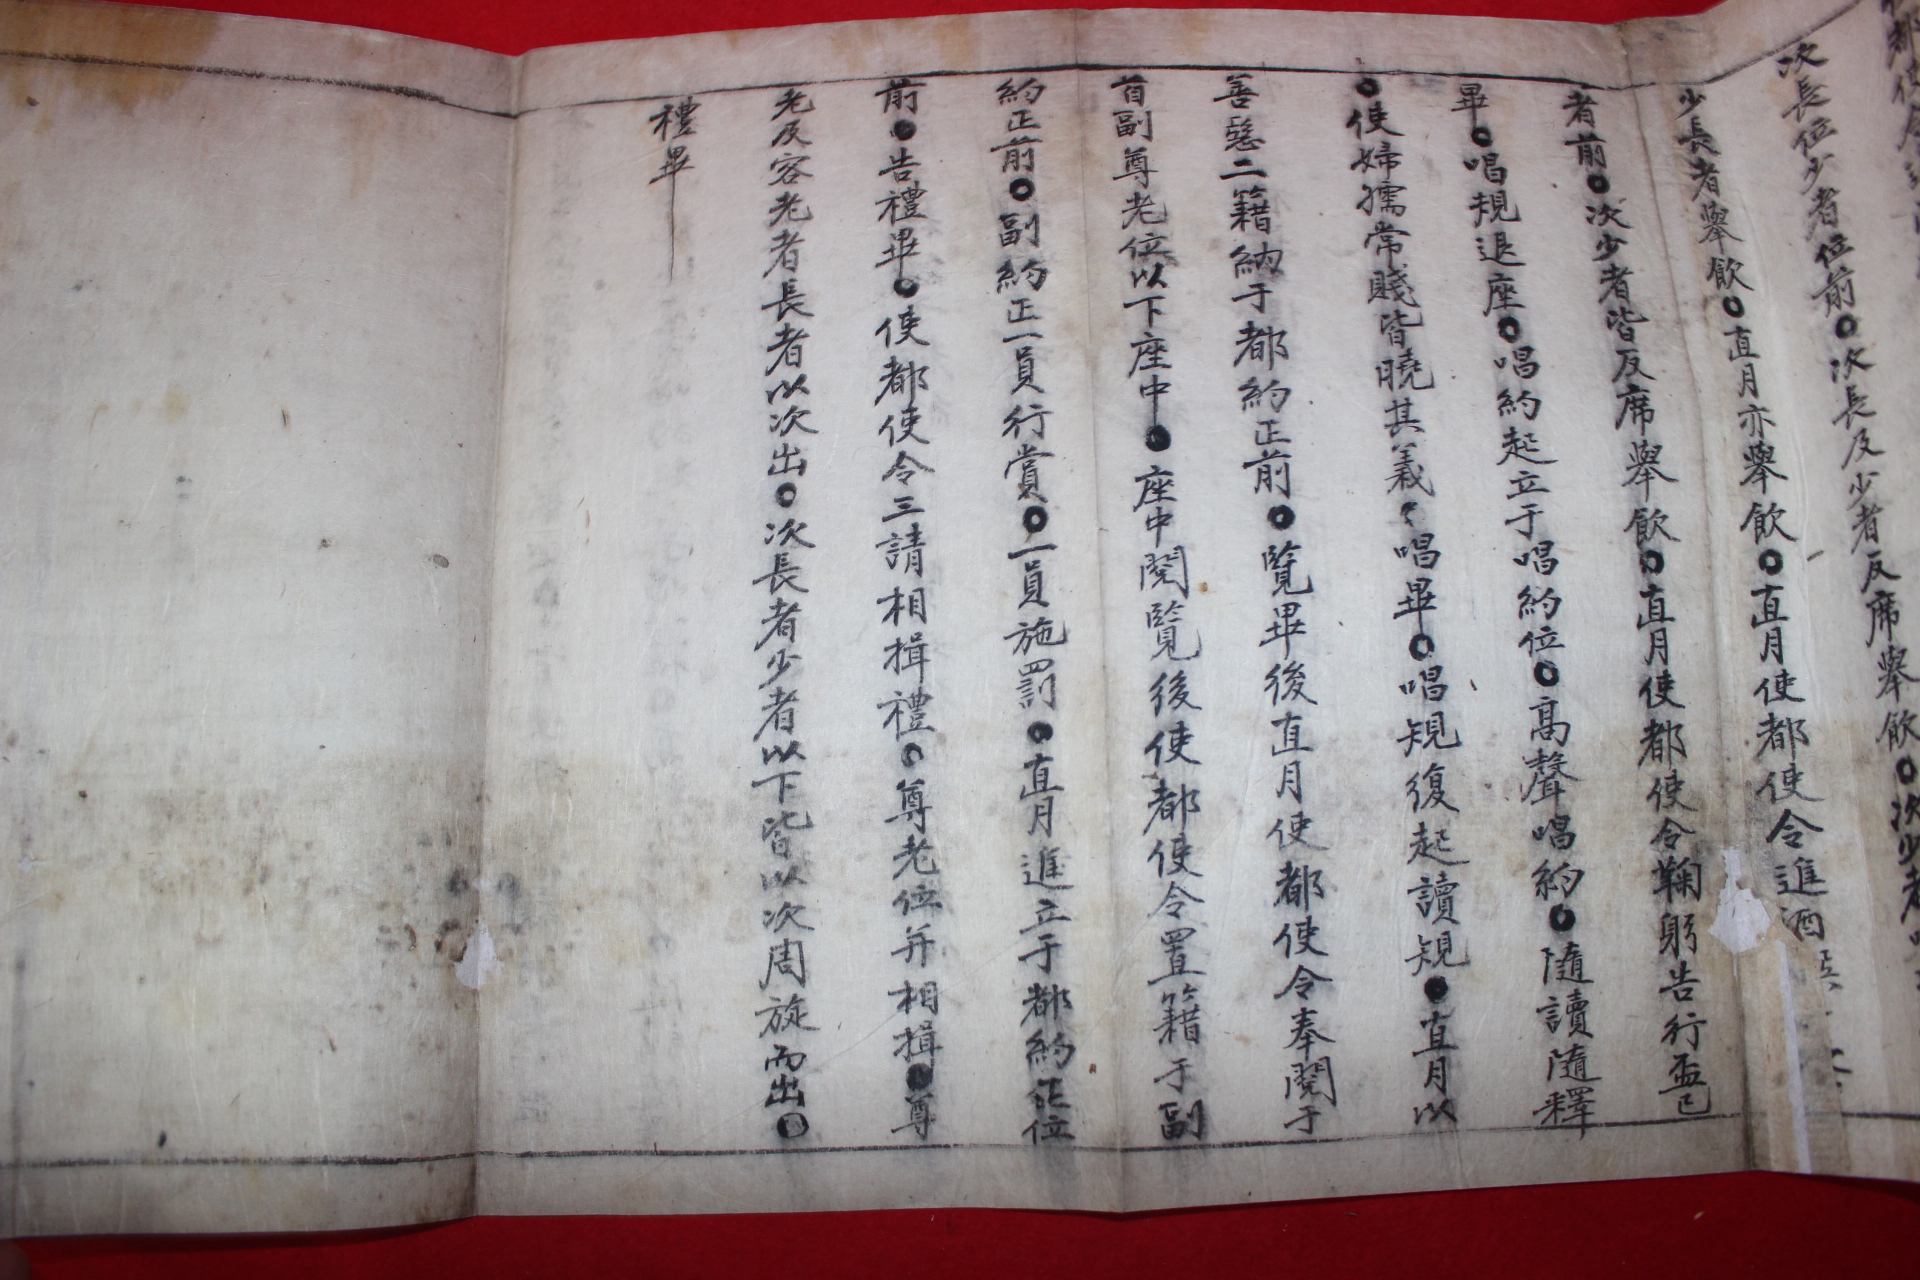 次長位少者位前○次長及少者反席擧飮○次少
少長者擧飮○直月亦擧飮○直月使都使令進酒
者前○次少者皆反席擧飮○直月使都使令鞠躬告行盃已
畢○唱規退座○唱約起立于唱約位○高聲唱約○隨讀隨釋
○使婦孺常賤皆曉其義○唱畢○唱規復起讀規○直月以
善惡二籍納于都約正前○覽畢後直月使都使令奉閱于
首副尊老位以下座中○座中閱覽後使都使令置籍于副
約正前○副約正一員行賞○一員施罰○直月進立于都約正位
前○告禮畢○使都使令三請相揖禮○尊老位并相揖○尊
老及容老者長者以次出○次長者少者以下皆以次周旋而出○
禮畢